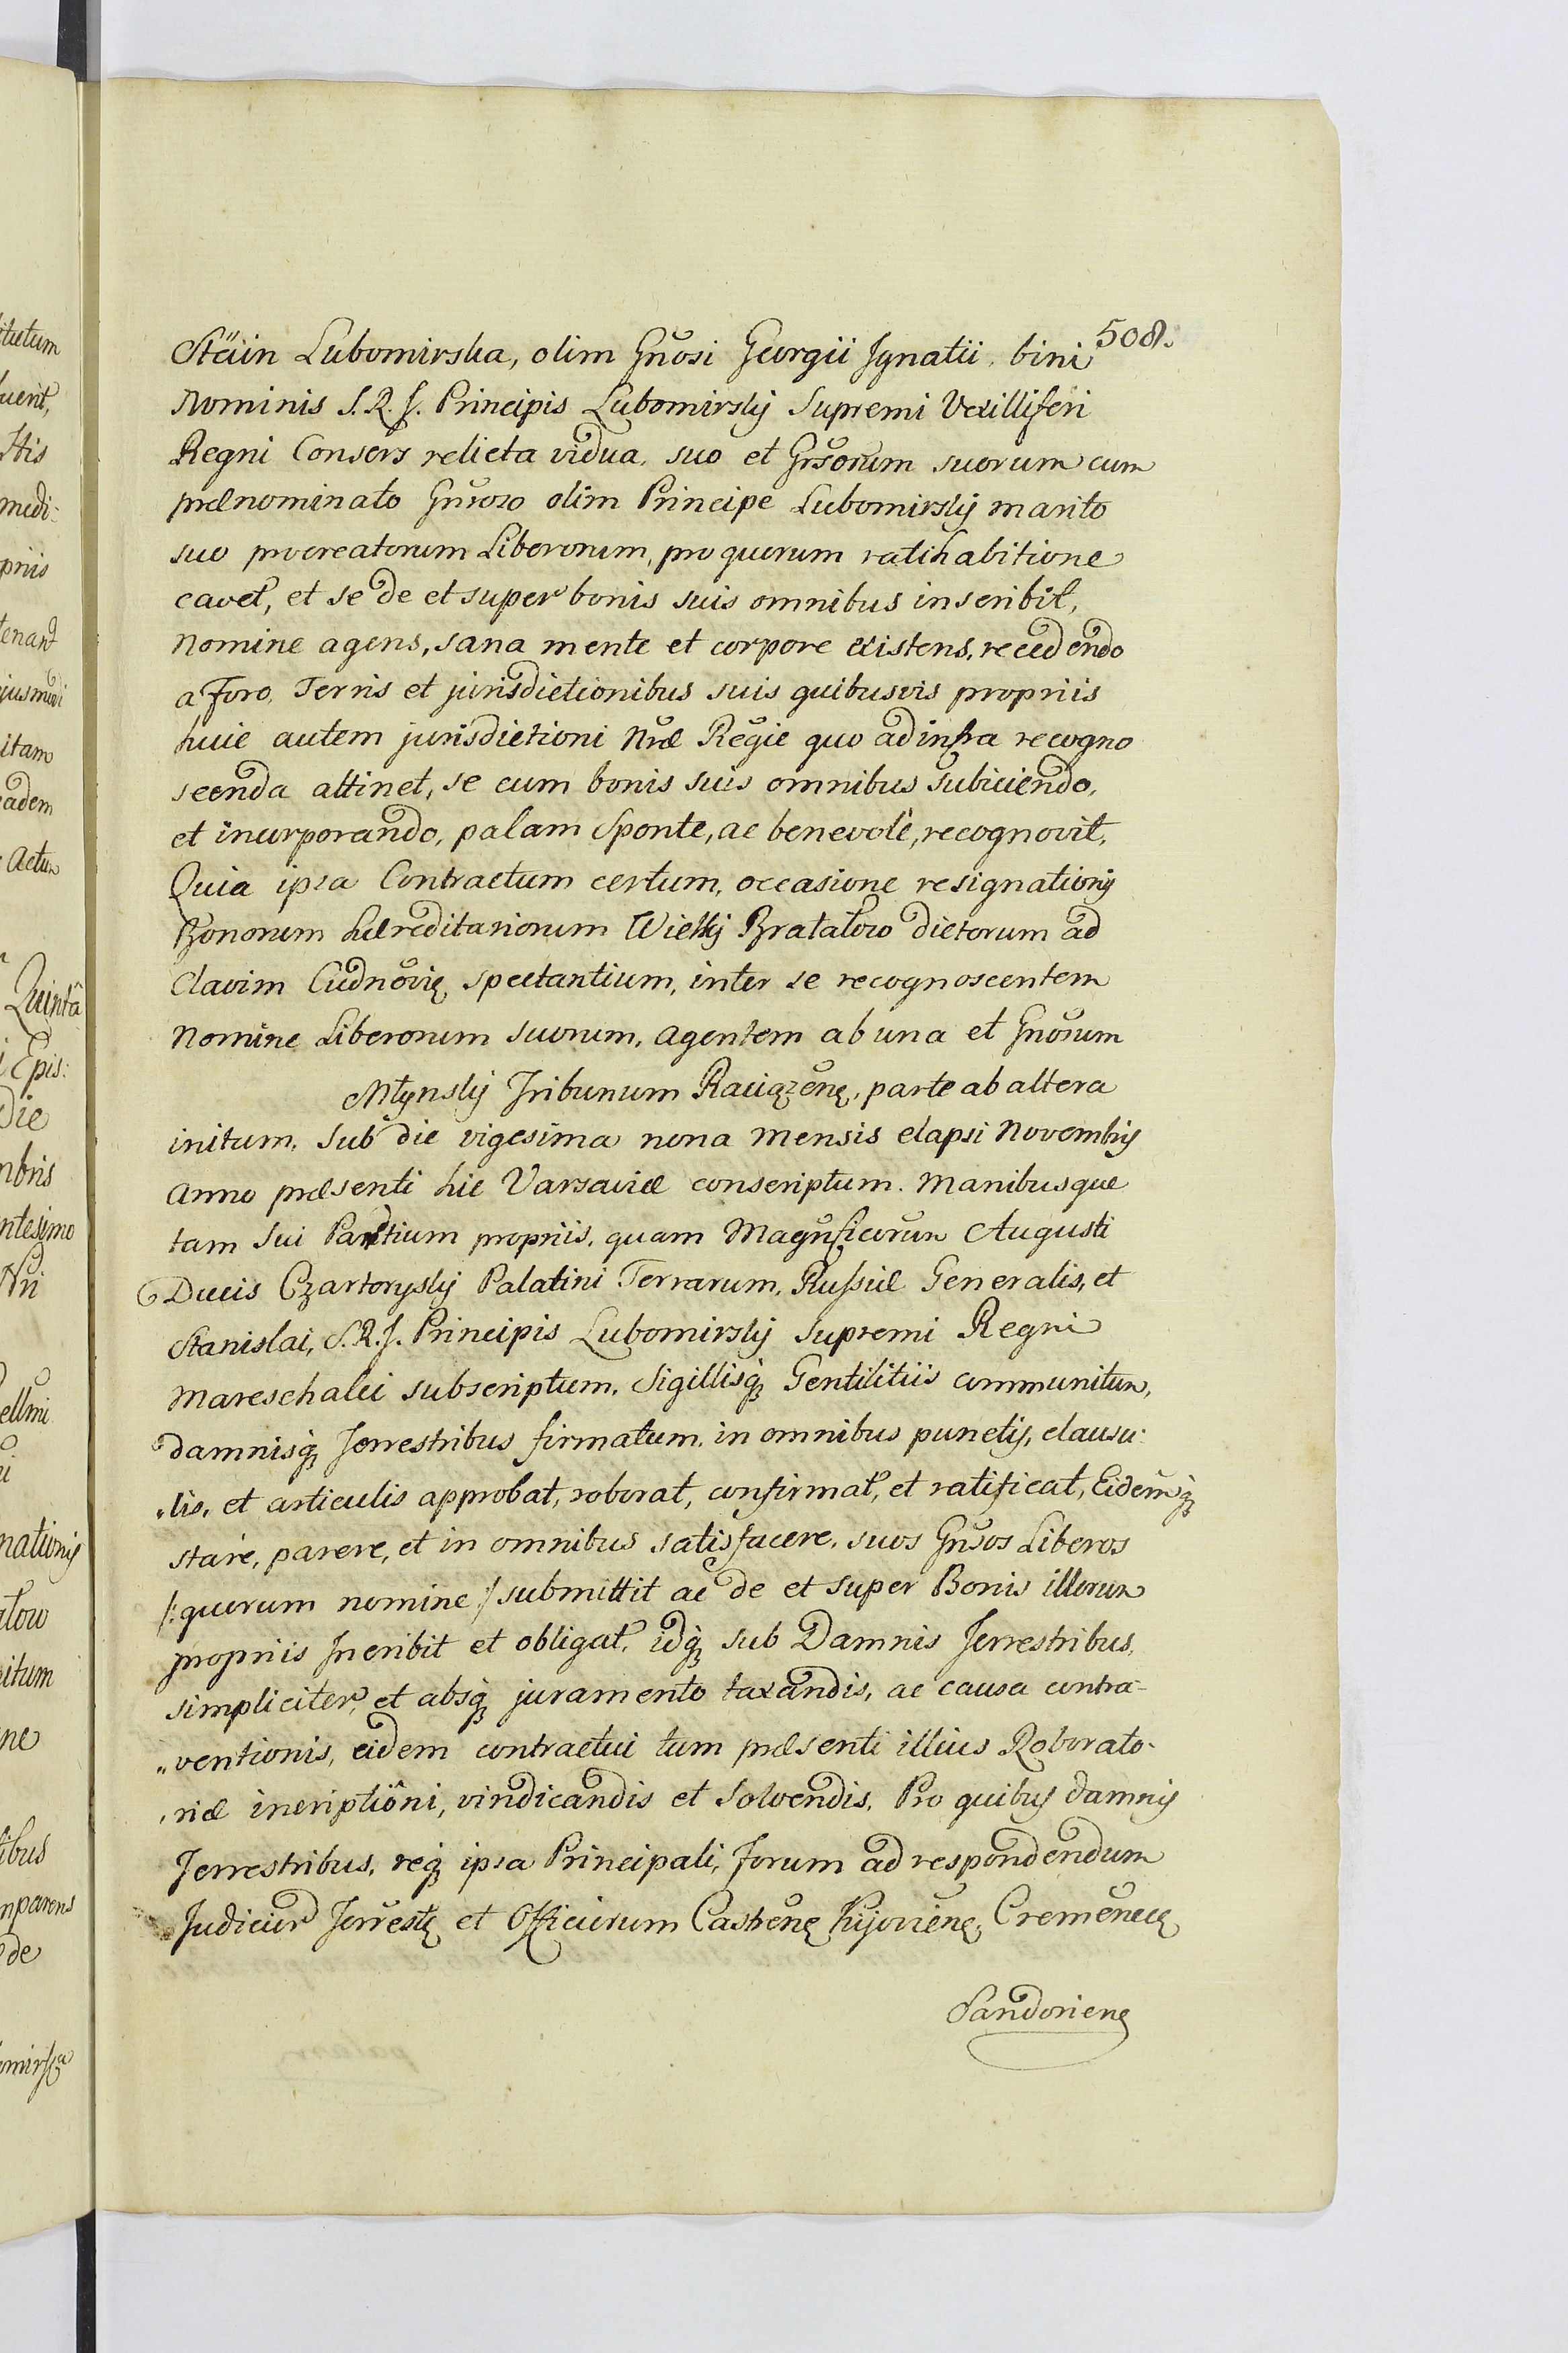 508.
Stäin Lubomirska, olim Gnosi Georgii Ignatii, bini
Nominis S. R. J. Principis Lubomirskij Supremi Vexilliferi
Regni Consors relicta vidua, suo et Grsorum suorum cum
prænominato Gnroso olim Principe Lubomirskij marito
suo procreatorum Liberorum, pro quorum ratihabitione
cavet, et se de et super bonis suis omnibus inscribit,
nomine agens, sana mente et corpore existens, recedendo
a foro, Terris et jurisdictionibus suis quibusvis propriis
huic autem jurisdictioni Nræ Regie quo ad infra recogno
scenda attinet, se cum bonis suis omnibus subiiciendo,
et incorporando, palam sponte, ac benevole, recognovit,
Quia ipsa Contractum certum, occasione resignationis
Bonorum hæreditariorum Wielkij Bratalow dictorum ad
Clavim Cudnovię spectantium, inter se recognoscentem
Nomine Liberorum suorum, agentem ab una et Gnosum
Młynskij Tribunum Raviązenę, parte ab altera
initum, sub die vigesima nona mensis elapsi Novembris
anno præsenti hic Varsaviæ conscriptum. Manibusque
tam sui Partium propriis, quam Magnficorum Augusti
Ducis Czartoryskij Palatini Terrarum, Russiæ Generalis, et
Stanislai, S. R. J. Principis Lubomirskij Supremi Regni
Mareschalci subscriptum, Sigillisq Gentilitiis communitum,
damnisq Terrestribus firmatum, in omnibus punctis, clausu:
„lis, et articulis approbat, roborat, confirmat, et ratificat, Eidemq
stare, parere, et in omnibus satisfacere, suos Gnsos Liberos
/: quorum nomine :/ submittit ac de et super Bonis illorum
propriis Incribit et obligat, idq sub Damnis Terrestribus,
simpliciter, et absq juramento taxandis, ac causa contra-
„ventionis, eidem contractui tum præsenti illius Roborato-
„riæ incriptioni, vindicandis et solvendis. Pro quibus damnis
Terrestribus, req ipsa Principali, forum ad respondendum
Judicior Terrestę et Officiorum Castrenę Kijovienę, Cremenecę
Sandorienę